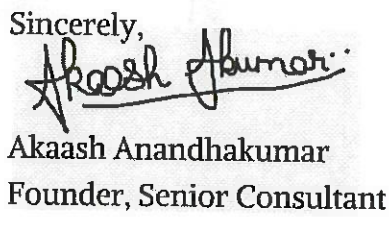 Sincerely,
Akaash Akumar
Akaash Anandhakumar
Founder, Senior Consultant